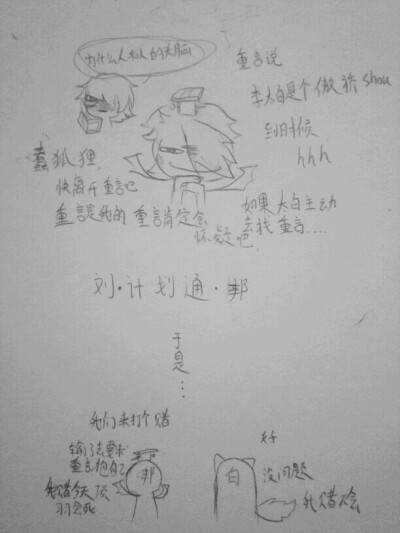 为什么人和人的头脑
重言说
李太白是个傲娇shou
到时候
hhh
蠢狐狸,
快离开重言吧
重言是我的
重言肯定会
怀疑吧,
如果太白主动
去找重言....
刘·计划通·邦
于
是
...
我们来打个赌
输了去要求
重言抱自己
我赌今天项
羽会死
邦
好
没问题
我赌不会
白